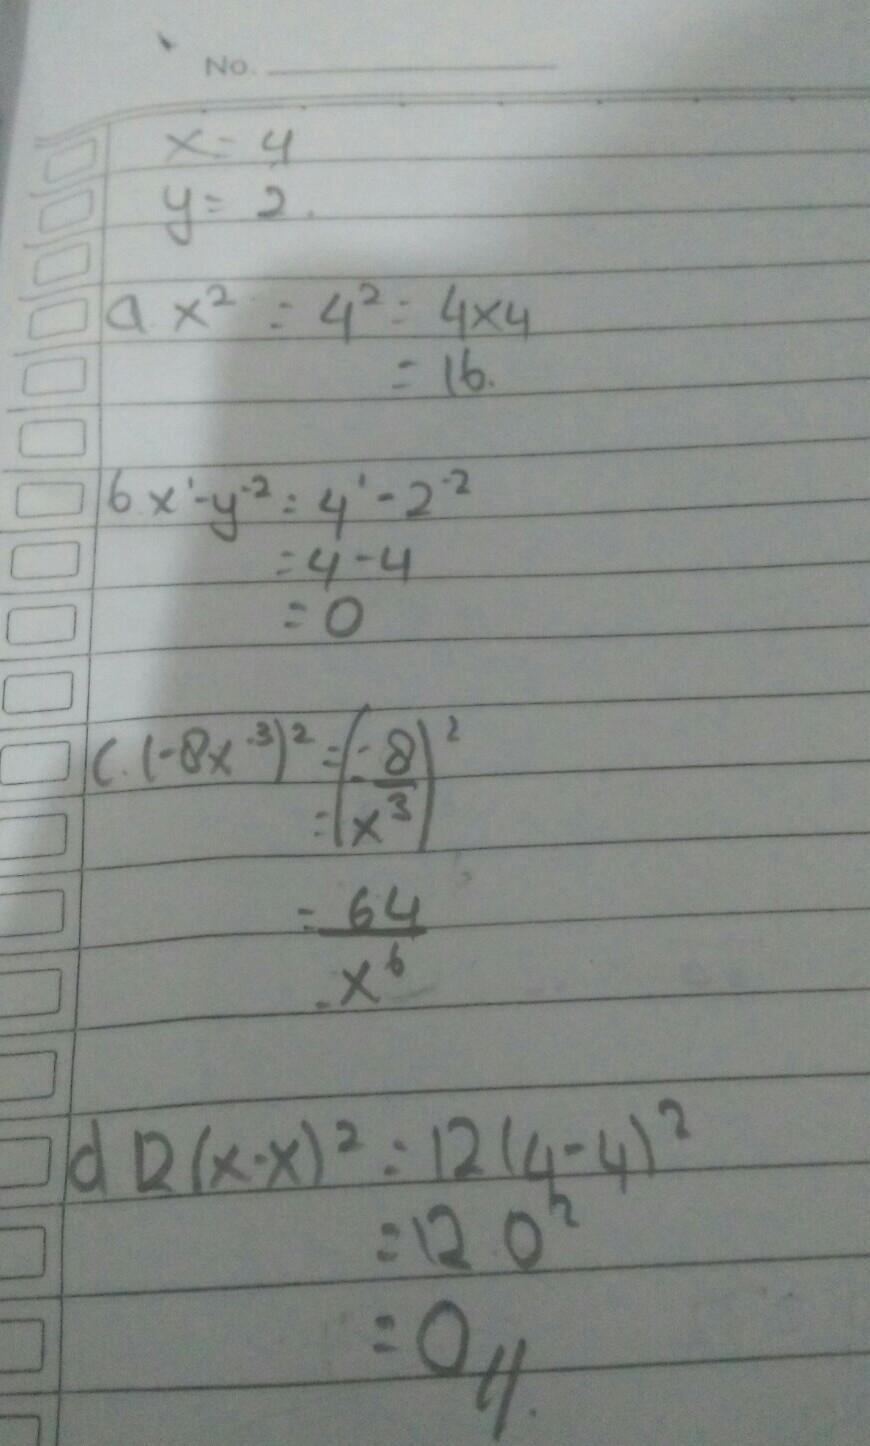 No.
x = 4
y = 2.
a x² = 4² = 4x4
= 16.
b x¹-y⁻² = 4¹ - 2⁻²
= 4 - 4
= 0
c. (-8x⁻³)² = (-8
= x³)²
= 64
x⁶
d 12(x-x)² = 12(4-4)²
= 12.0²
= 0//.